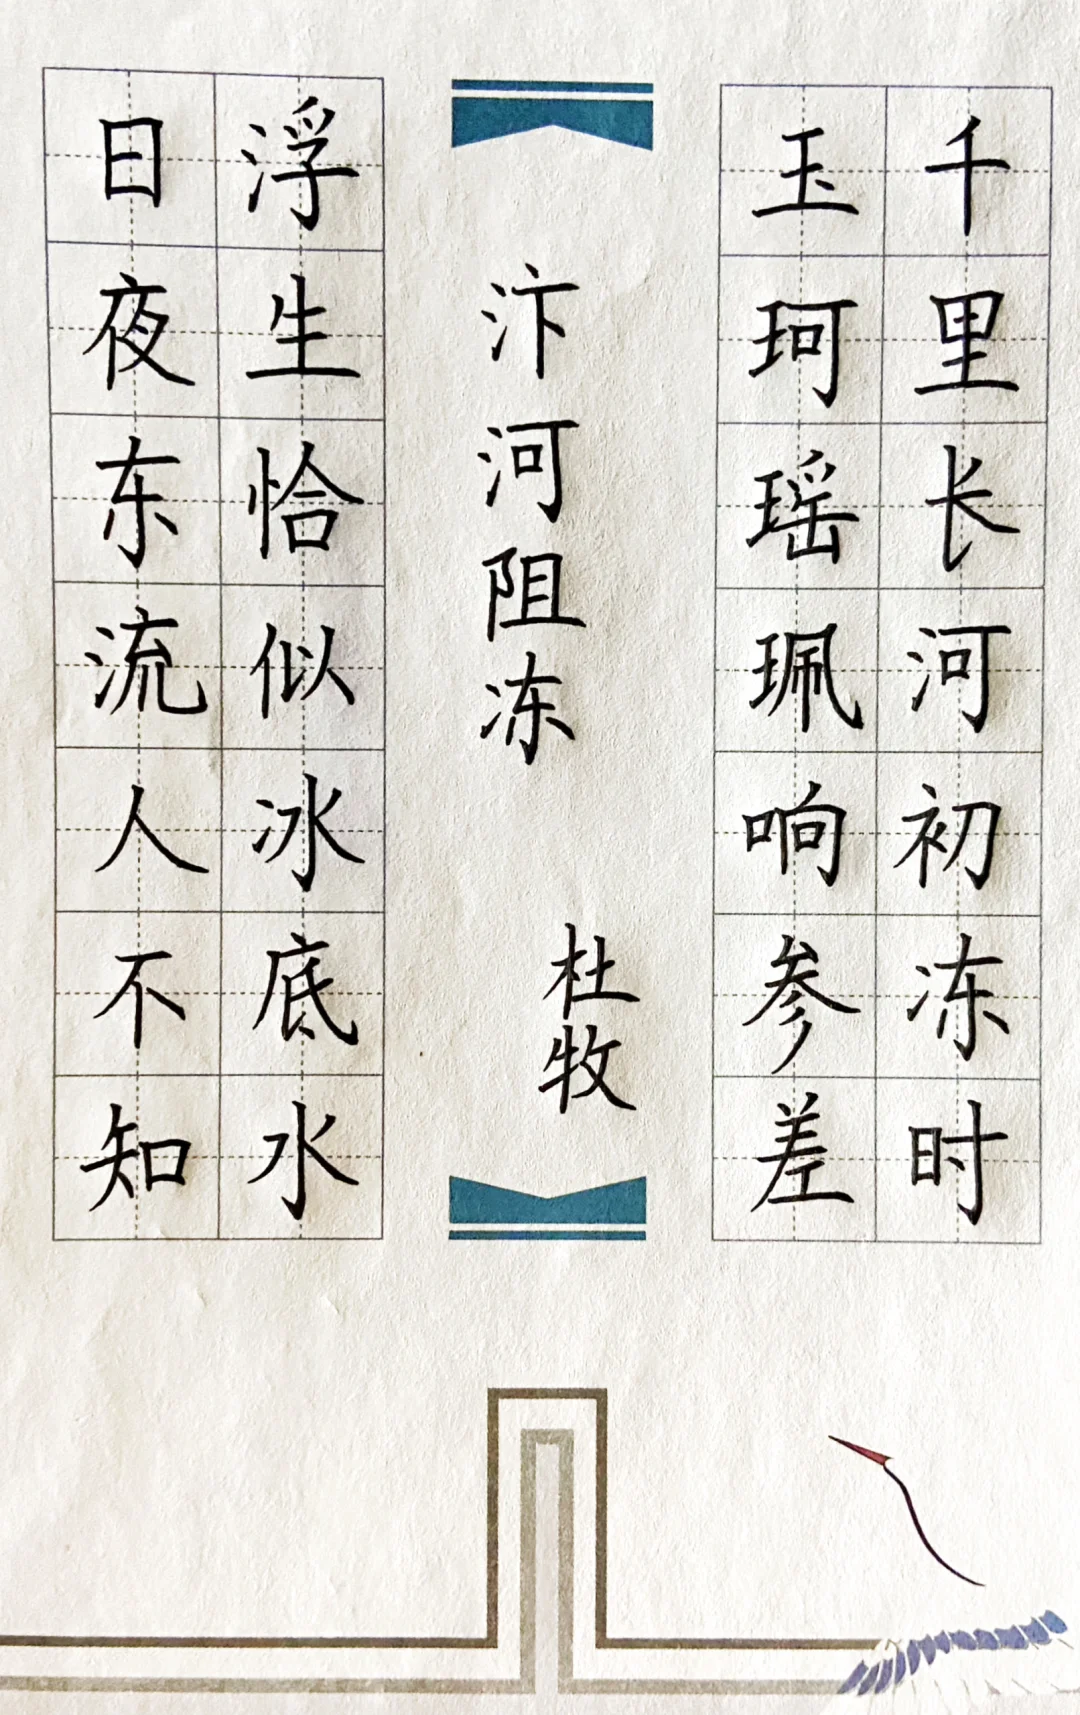 千里长河初冻时
玉珂瑶珮响参差
汴河阻冻
杜牧
浮生恰似冰底水
日夜东流人不知